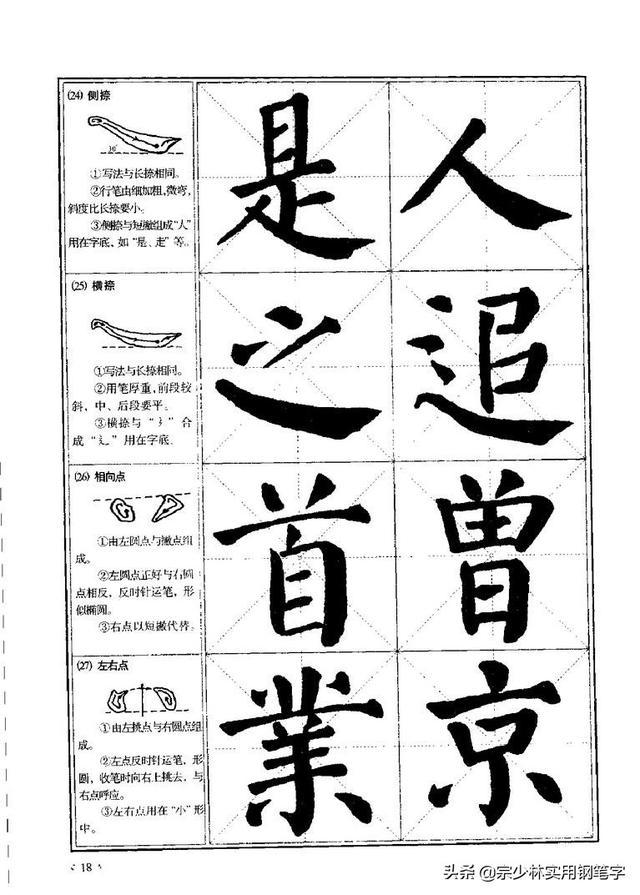 (24) 侧捺
30°
①写法与长捺相同。
②行笔由细加粗，微弯，
斜度比长捺要小。
③侧捺与短撇组成“人”
用在字底，如“是、走”等。
是 人
(25) 横捺
①写法与长捺相同。
②用笔厚重，前段较
斜，中、后段要平。
③横捺与“⻌”合
成“辶”用在字底.
之 追
(26) 相向点
①由左圆点与撇点组
成。
②左圆点正好与右圆
点相反，反时针运笔，形
似椭圆。
③右点以短撇代替。
首 曾
(27) 左右点
①由左挑点与右圆点组
成。
②左点反时针运笔，形
圆，收笔时向右上挑去，与
右点呼应。
③左右点用在“小”形
中。
業 京
18
头条 @宗少林实用钢笔字